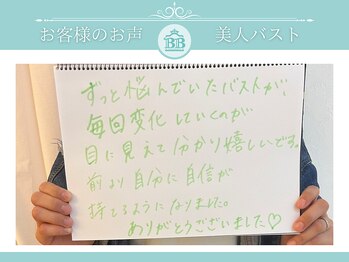 お客様のお声
BB
美人バスト
ずっと悩んでいたバストが、
毎回変化していくのが
目に見えて分かり嬉しいです。
前より自分に自信が
持てるようになりました。
ありがとうございました♡